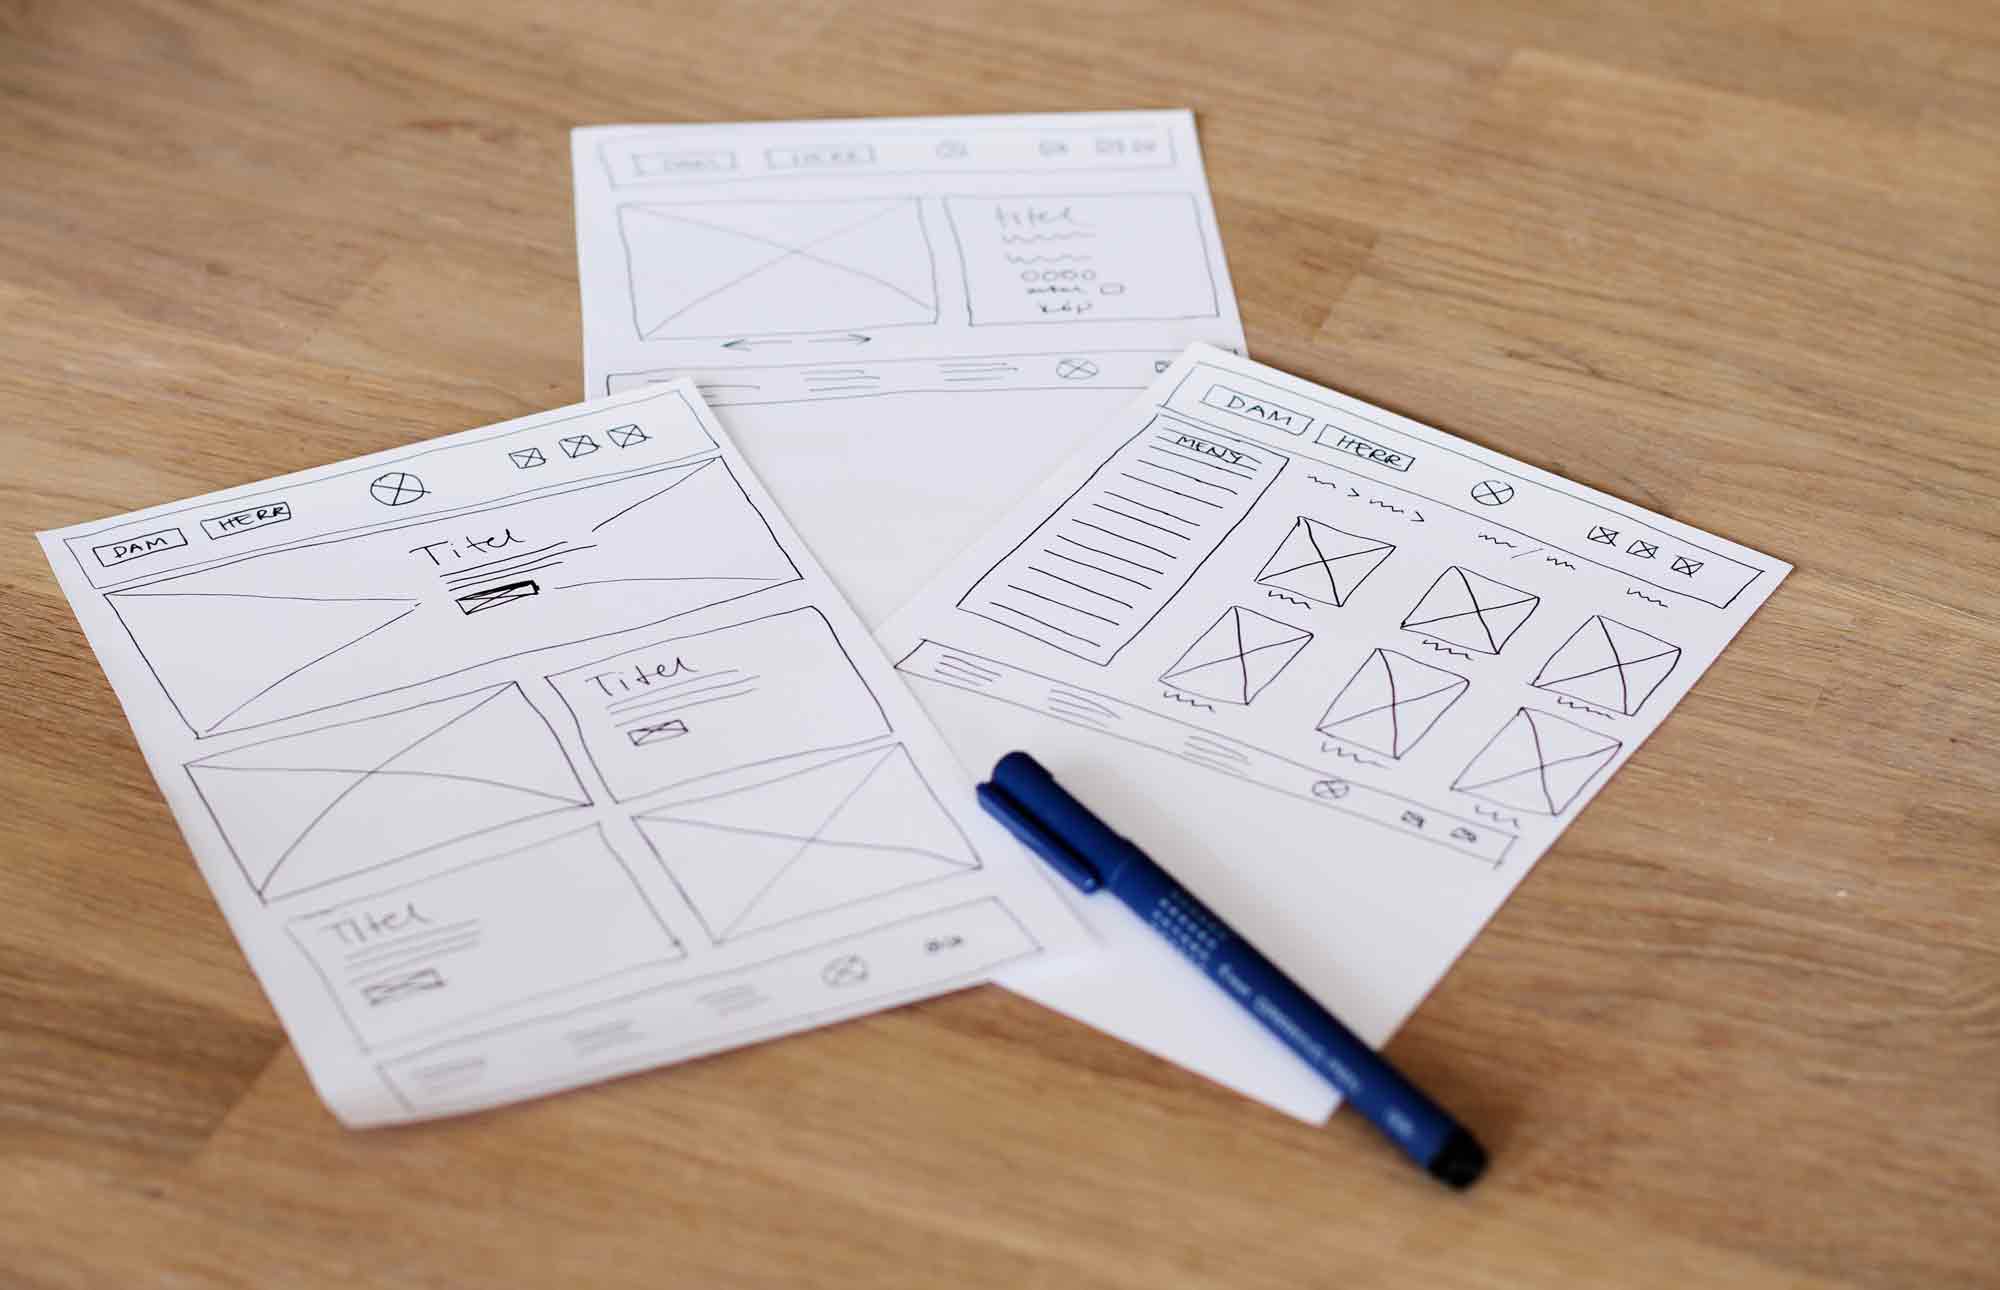 titel
köp
DAM
HERR
Titel
Titel
Titel
DAM
HERR
MENY